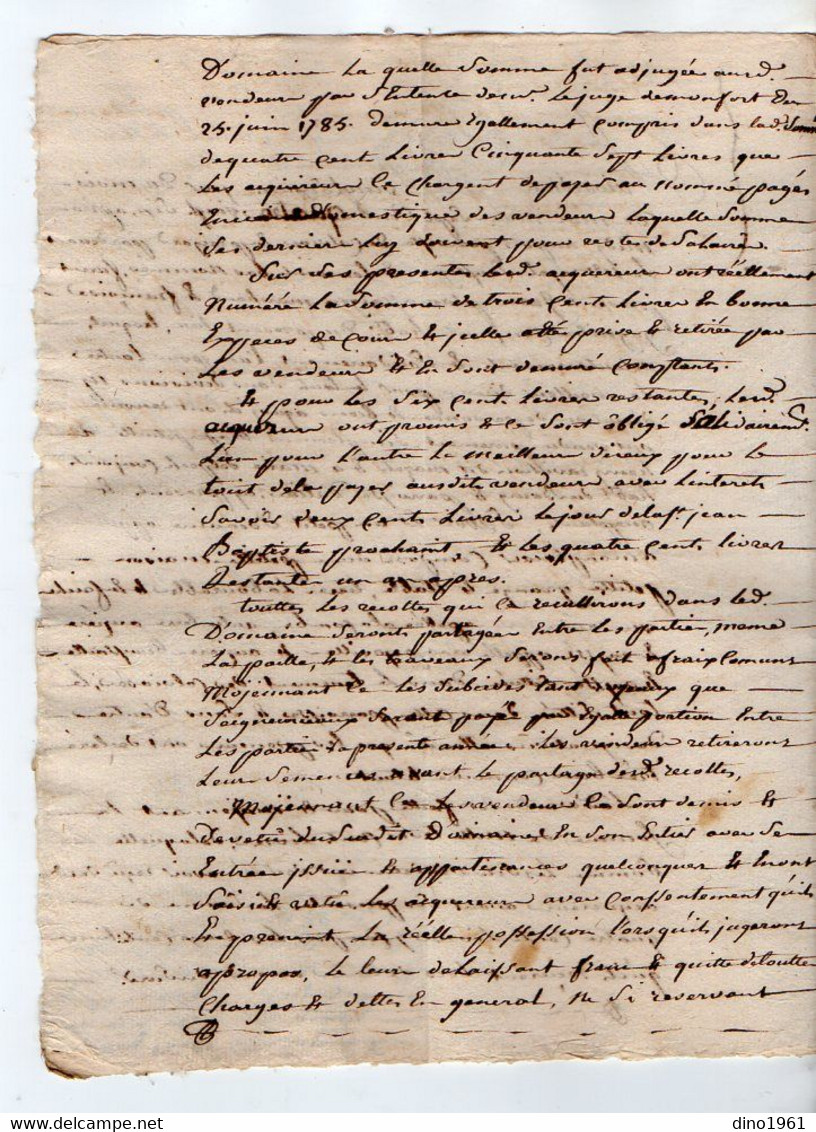 Domaine la quelle somme fut adjugée aud.
vendeur par Sentence de mr. le juge demonfort du
25. juin 1785. demure Egallement compris dans lad. somme
de quatre cent Livres Cinquante Sept Livres que
Les aquereurs Ce Chargent de payer au nommé pagés
domestique des vendeurs Laquelle Somme
Ses dernier luy doivent pour reste de Salaires
Sur Des presentes lesd. acquereurs ont réellement
Numéré La Somme de trois Cents Livres En bonne
Especes de cour & jcelle eté prise & retirée par
Les vendeurs & En Sont demuré Constants.
& pour les Six Cents Livres restantes, lesd.
acquereurs ont promis & ce Sont obligé Solidairemt.
L'un pour l'autre le meilleur dreux pour le
tout dela payer ausdits vendeurs avec linterets
Savoir deux Cents Livres le jour de la st. jean
Baptiste prochaint, & les quatre Cents livres
Restantes un an apres.
touttes Les recoltes qui Ce recuillirons dans led.
Domaine Seronts partagées Entre Les partie, meme
La paille, & les travaux Serons fait a fraix Comuns
Mojennant Ce les Subcides tant Royaux que
Seigneuriaux Seront payé par Egalle portion Entre
Les partie La presente année, Les vendeurs retireront
Leur Semences avant le partage desd. recoltes,
Mojennant Ce Les vendeurs Ce Sont demis &
Devetus du Susdit Domaines En Son Entier avec Ses
Entrée jssüe & appartenances quelconques & En ont
Saisi & vetu Les acquereurs avec Conssentement qu'ils
En prenent La réelle possession Lorsqu'ils jugeront
apropos, le leurs delaissant franc & quitte de toutte
Charges & dettes En general, ne Si reservant
dino1961